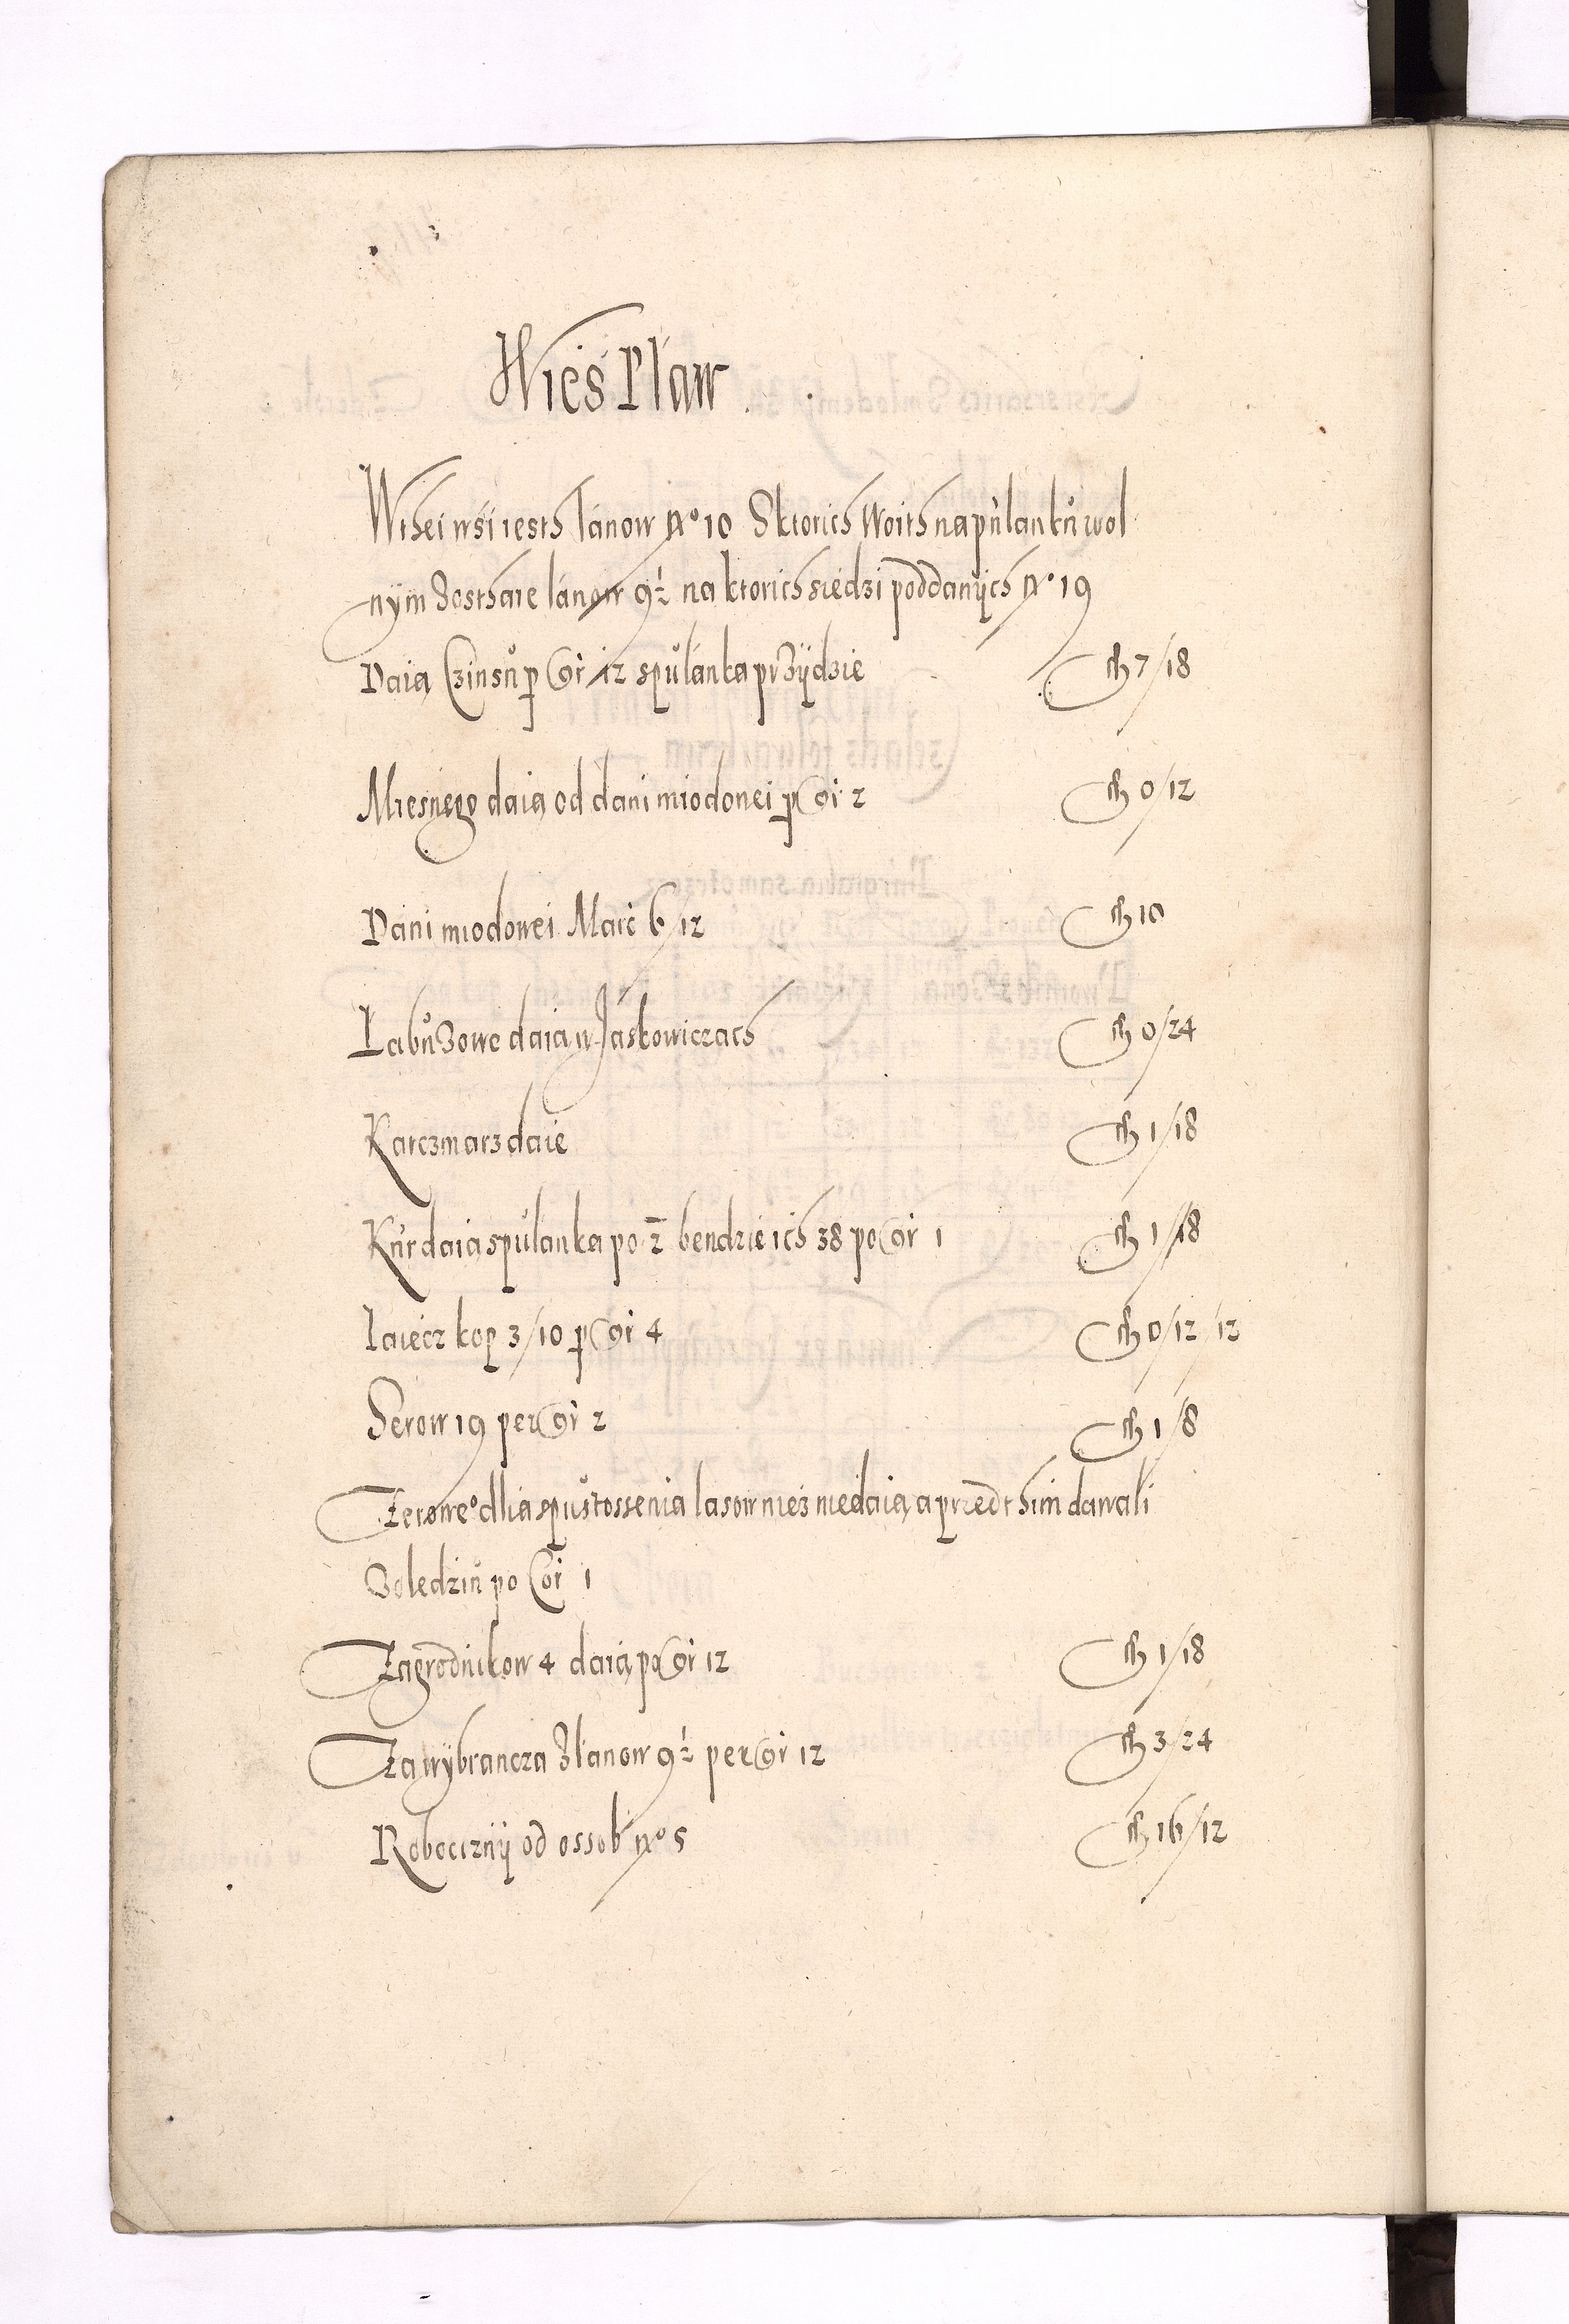 Wies Plaw
Wthei wsi iesth łanow No 10 Sktorich Woith na pulanku wol
nym Zosthaie łanow 9½ na ktorich siedzi poddanych No 19
Daią Czinsu per Gr 12 spulanka przydzie fl 7/18
Miesnego daią od dani miodowei per Gr 2 fl 0/12
Dani miodowei Marc 6/12 fl 10
Łabuzowe daią w Jaskowiczach fl 0/24
Karczmarz daie fl 1/18
Kur daią spulanka po 2 bendzie ich 38 po Gr 1 fl 1/18
Iaiecz kop 3/10 per Gr 4 fl 0/12/12
Serow 19 per Gr 2 fl 1/8
Zerowego dlia spustossenia lasow niez niedaią a przedthim dawali
Zoledziu po Cor 1
Zagrodnikow 4 daią po Gr 12 fl 1/18
Za wybrancza Złanow 9½ per Gr 12 fl 3/24
Roboczizny od ossob No 5 fl 16/12